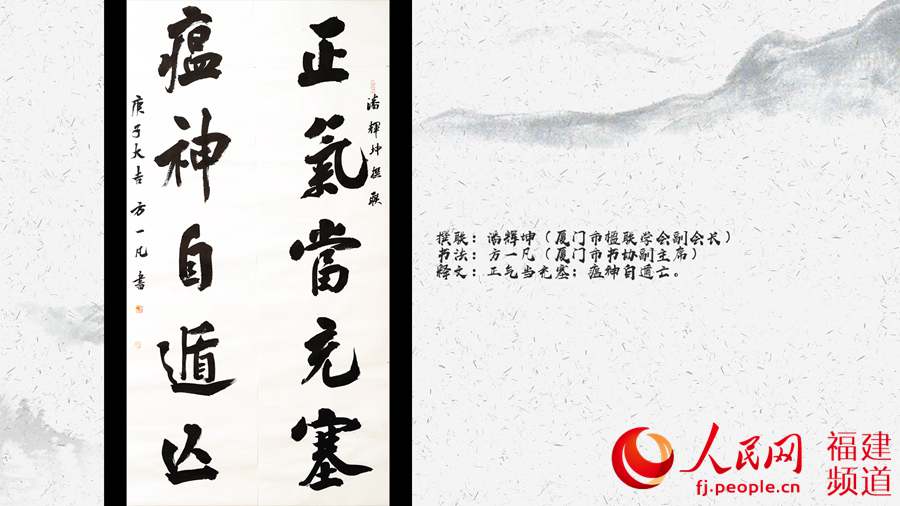 正氣當充塞
潘輝坤撰联
瘟神自遁亾
庚子大吉 方一凡書
撰联：潘辉坤（厦门市楹联学会副会长）
书法：方一凡（厦门市书协副主席）
释文：正气当充塞；瘟神自遁亡。
人民网
fj.people.cn
福建
频道